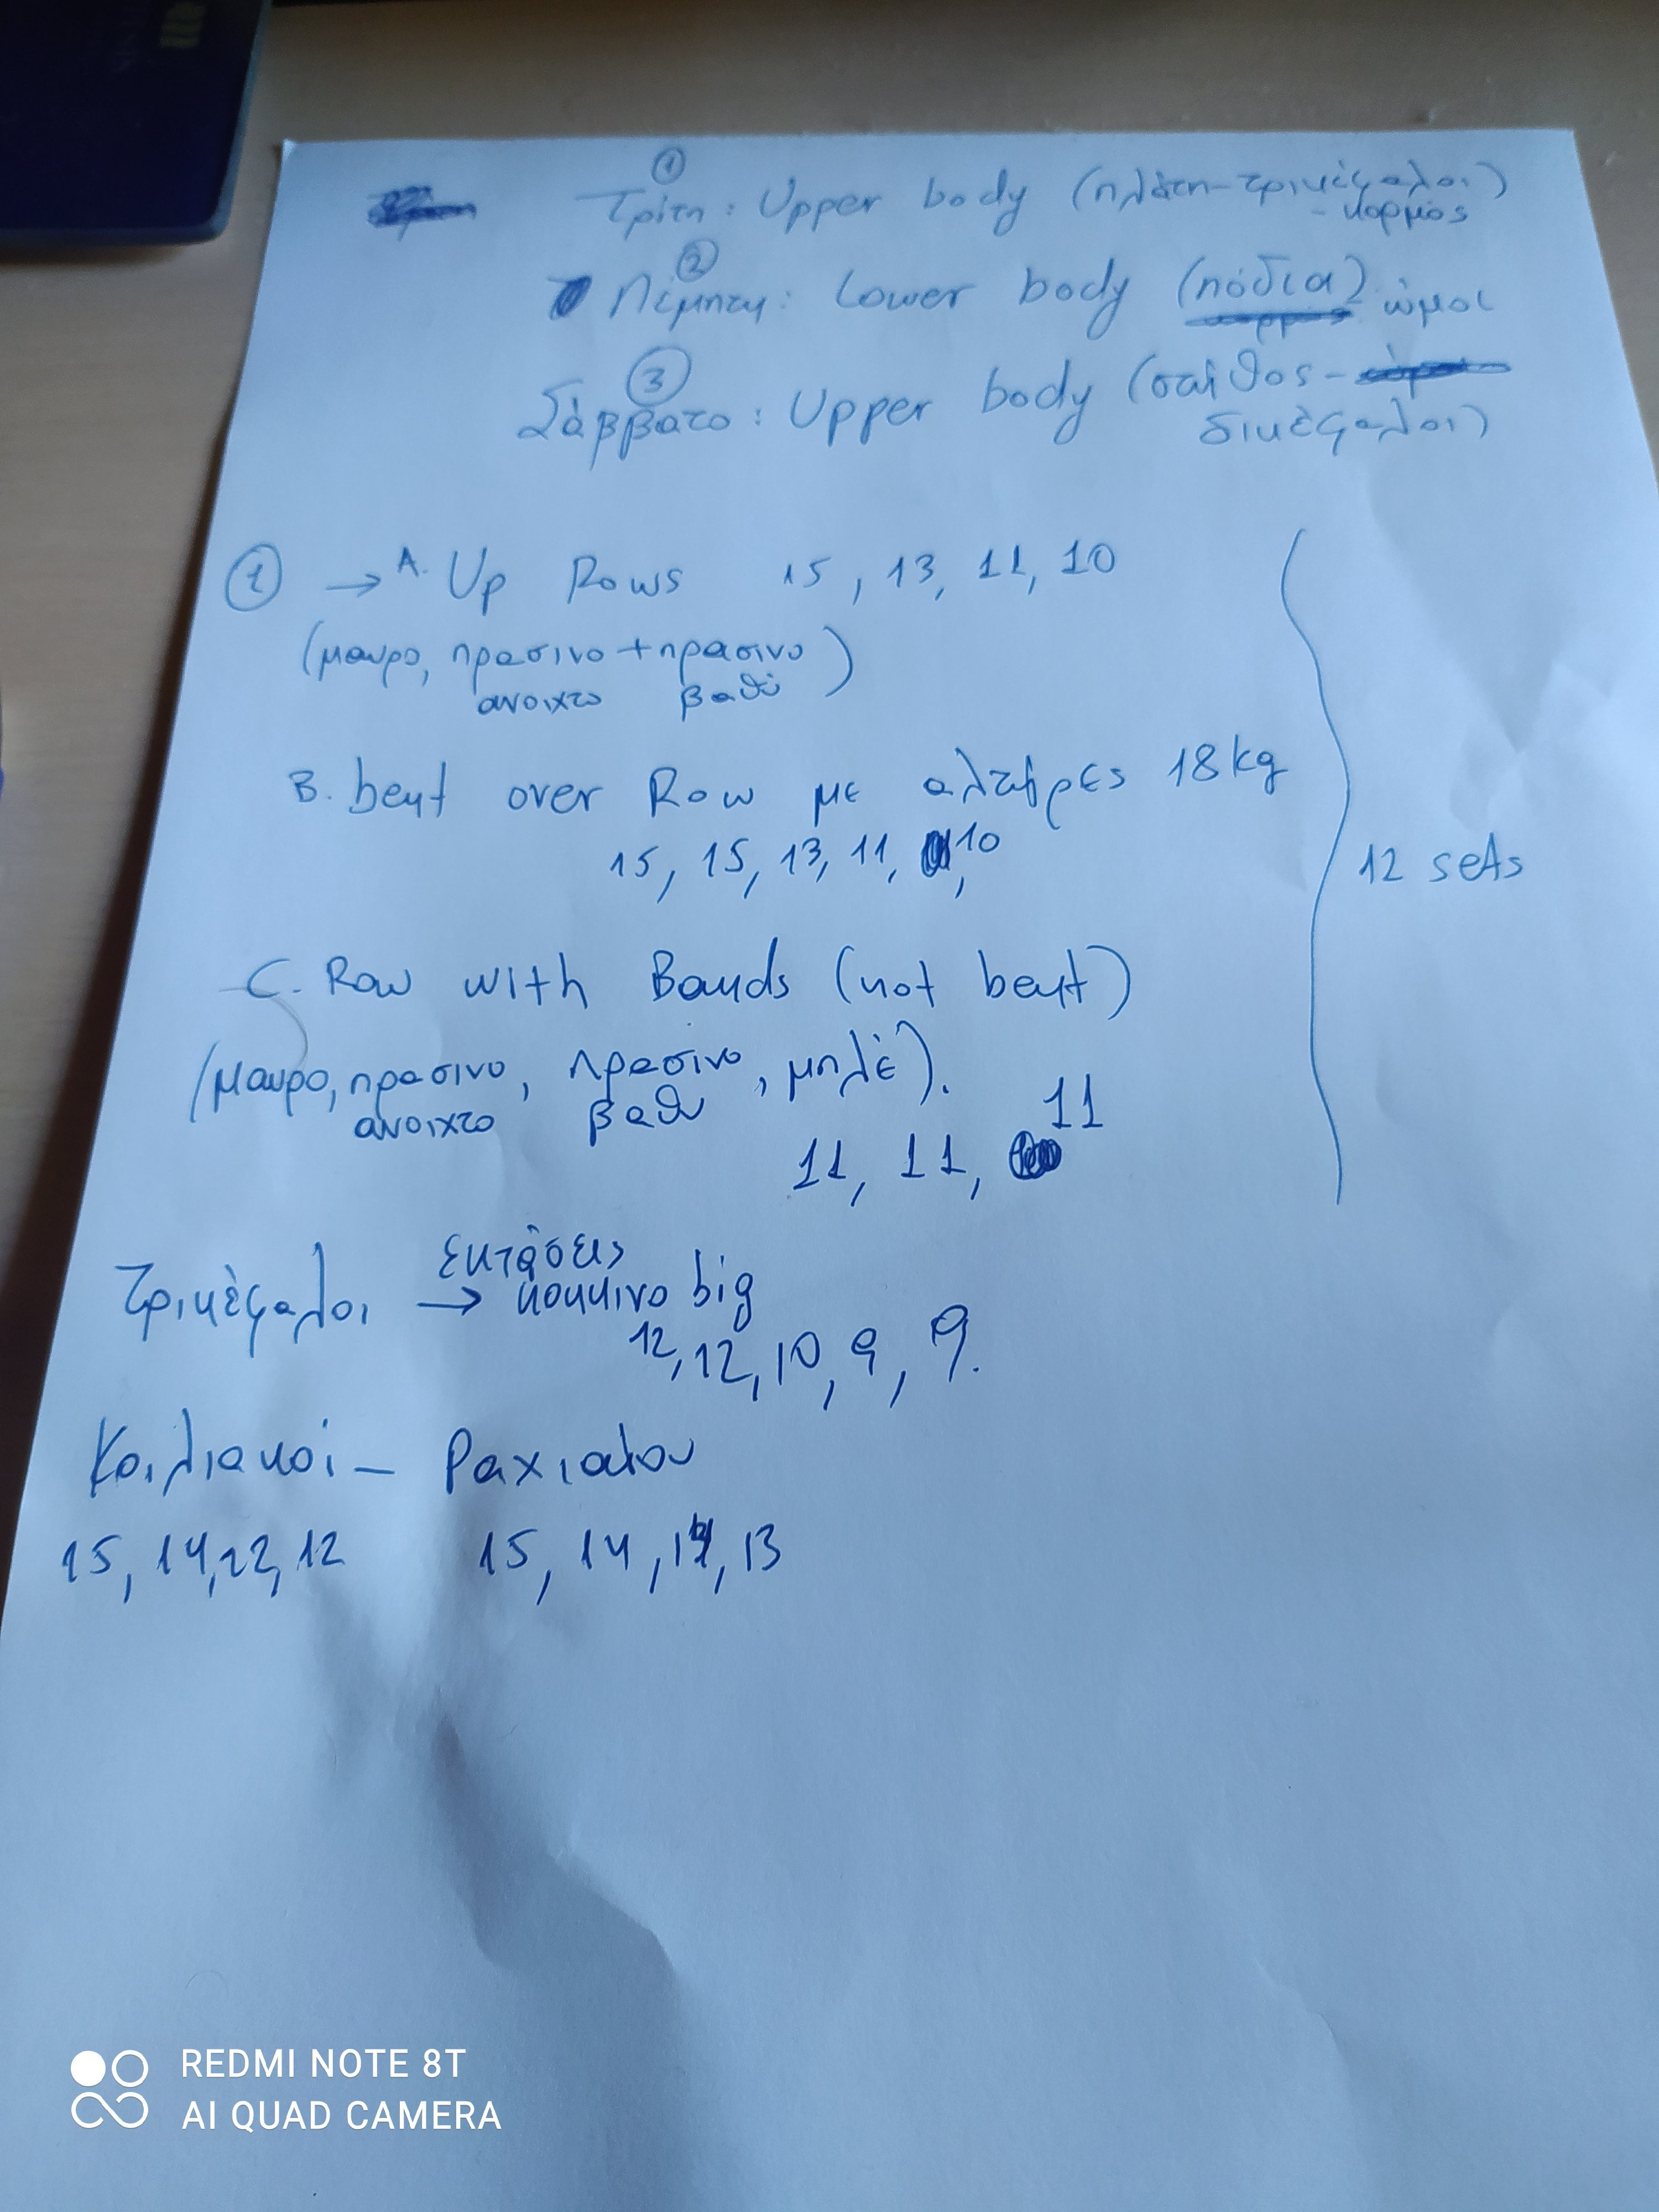 ①
Τρίτη: Upper body (πλάτη-τρικέφαλοι)
- κορμός
②
Πέμπτη: Lower body (πόδια) ώμοι
③
Σάββατο: Upper body (στήθος-
δικέφαλοι)
① → A. Up Rows 15, 13, 11, 10
(μαυρο, πρασινο + πρασινο)
ανοιχτο βαθύ
B. bent over Row με αλτήρες 18kg
15, 15, 13, 11, 10
12 sets
C. Row with Bands (not bent)
(μαυρο, πρασινο, πρασινο, μπλέ).
ανοιχτο βαθυ
11
11, 11,
Εκτάσεις
Τρικέφαλοι → κοκκινο big
12, 12, 10, 9, 9.
Κοιλιακοί - Ραχιαίου
15, 14, 12, 12 15, 14, 14, 13
REDMI NOTE 8T
AI QUAD CAMERA